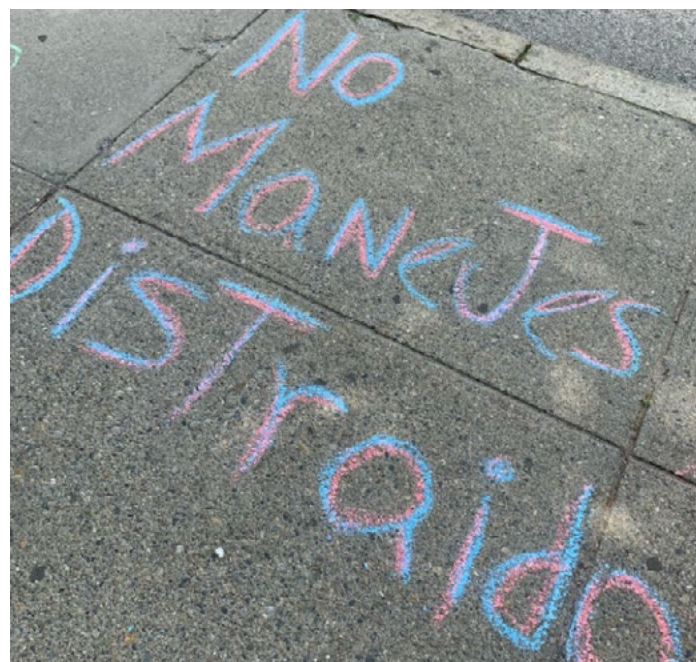 No
Manejes
Distraido